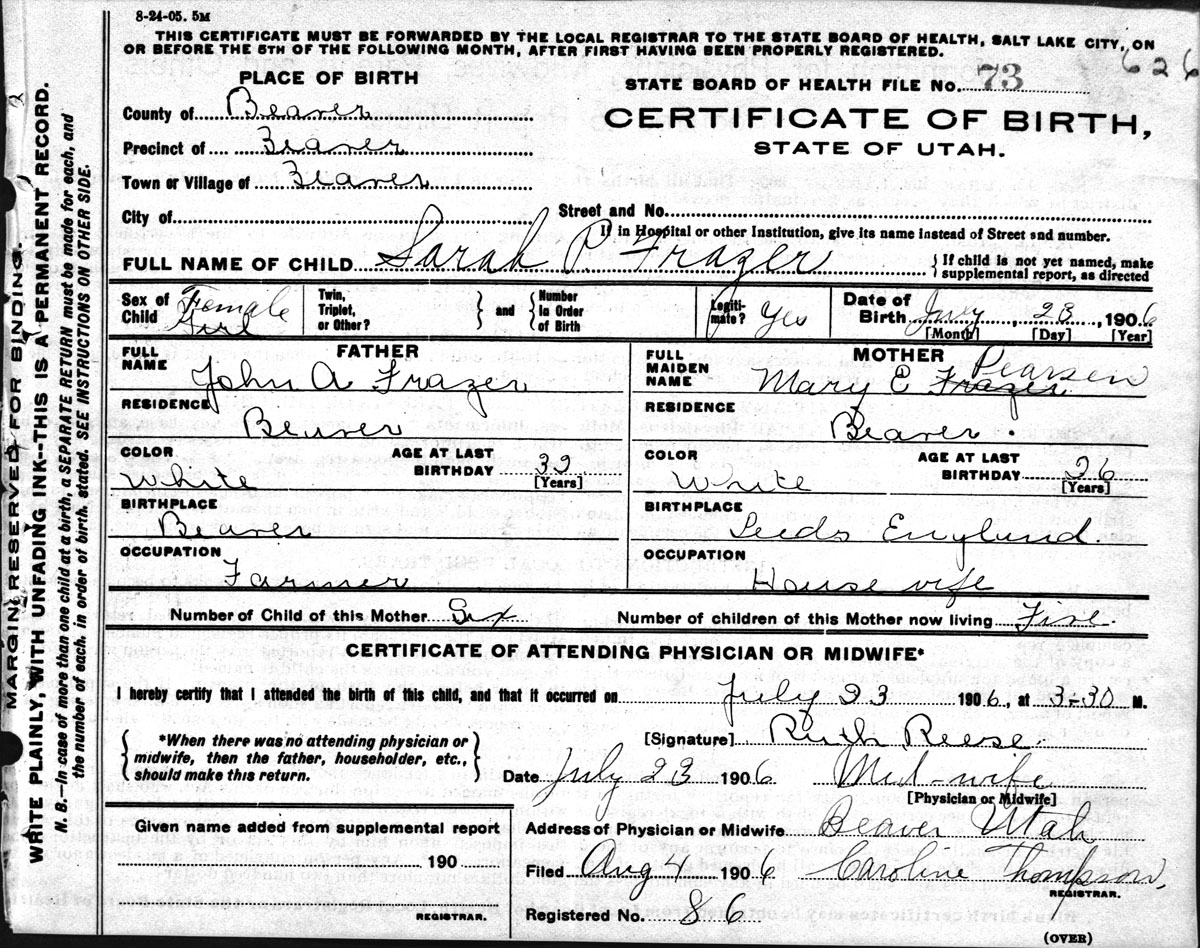 8-24-05. 5M
THIS CERTIFICATE MUST BE FORWARDED BY THE LOCAL REGISTRAR TO THE STATE BOARD OF HEALTH, SALT LAKE CITY, ON
OR BEFORE THE 5TH OF THE FOLLOWING MONTH, AFTER FIRST HAVING BEEN PROPERLY REGISTERED.
626
PLACE OF BIRTH
STATE BOARD OF HEALTH FILE No. 73
County of Beaver
CERTIFICATE OF BIRTH,
Precinct of Beaver
STATE OF UTAH.
Town or Village of Beaver
City of
Street and No.
If in Hospital or other Institution, give its name instead of Street and number.
FULL NAME OF CHILD Sarah P Frazer
{ If child is not yet named, make
supplemental report, as directed
Sex of Child Female Girl
Twin, Triplet, or Other?
} and { Number in Order of Birth
Legitimate? Yes
Date of Birth July, 23, 1906
[Month] [Day] [Year]
FATHER
FULL NAME John A Frazer
RESIDENCE
Beaver
COLOR White
AGE AT LAST BIRTHDAY 32
[Years]
BIRTHPLACE
Beaver
OCCUPATION
Farmer
MOTHER
FULL MAIDEN NAME Mary E Frazer Pearsen
RESIDENCE
Beaver.
COLOR White
AGE AT LAST BIRTHDAY 26
[Years]
BIRTHPLACE
Leeds England
OCCUPATION
House wife
Number of Child of this Mother Six
Number of children of this Mother now living Five
CERTIFICATE OF ATTENDING PHYSICIAN OR MIDWIFE*
I hereby certify that I attended the birth of this child, and that it occurred on July 23 1906, at 3-30 M.
{ *When there was no attending physician or
midwife, then the father, householder, etc.,
should make this return. }
[Signature] Ruth Reese
Date July 23 1906 Mid-wife
[Physician or Midwife]
Given name added from supplemental report
190
REGISTRAR.
Address of Physician or Midwife Beaver Utah
Filed Aug 4 1906 Caroline Thompson,
REGISTRAR.
Registered No. 86
(OVER)
MARGIN RESERVED FOR BINDING.
WRITE PLAINLY, WITH UNFADING INK--THIS IS A PERMANENT RECORD.
N. B.--In case of more than one child at a birth, a SEPARATE RETURN must be made for each, and
the number of each, in order of birth, stated. SEE INSTRUCTIONS ON OTHER SIDE.